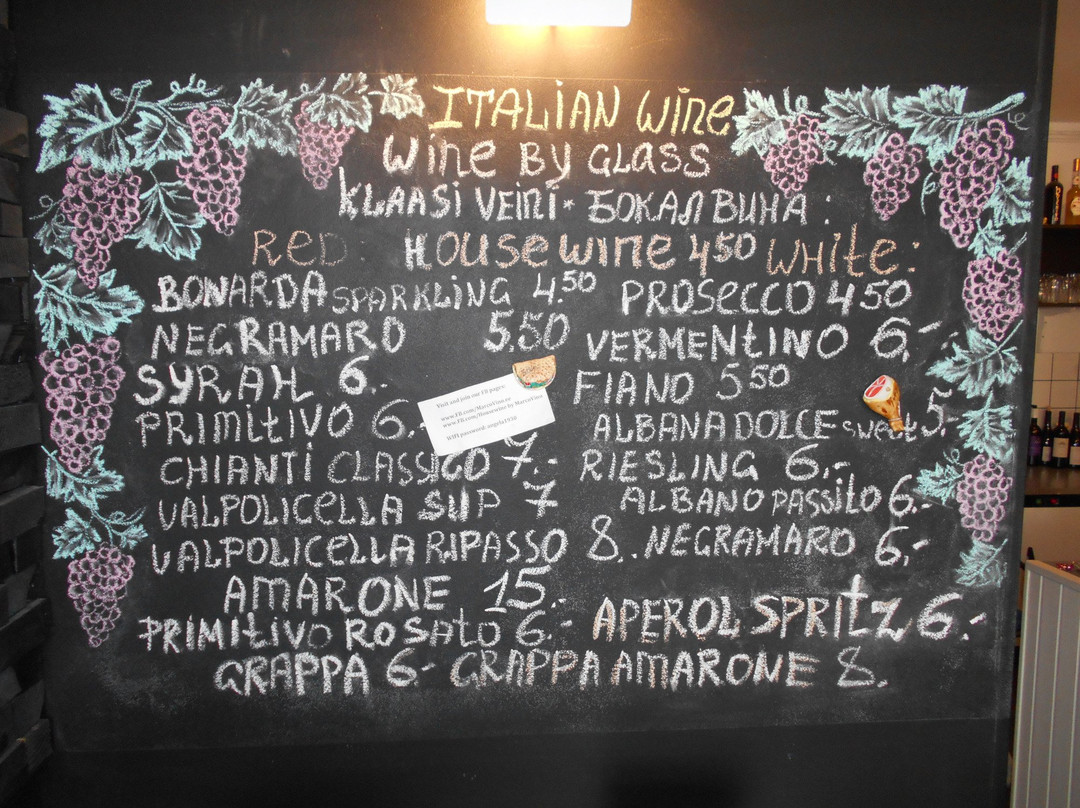 ITALIAN WINE
WINE BY GLASS
KLAASI VEINI * БОКАЛ ВИНА :
RED HOUSE WINE 4 50 WHITE :
BONARDA SPARKLING 4.50 PROSECCO 4 50
NEGRAMARO 5.50 VERMENTINO 6,-
SYRAH 6.- FIANO 5 50
PRIMITIVO 6.- ALBANA DOLCE SWEET 5.-
Visit and join our FB pages:
WIFI password:
CHIANTI CLASSICO 7.- RIESLING 6.-
VALPOLICELLA SUP 7 ALBANO PASSITO 6.-
VALPOLICELLA RIPASSO 8.. NEGRAMARO 6,-
AMARONE 15.-
PRIMITIVO ROSATO 6.- APEROL SPRITZ 6.-
GRAPPA 6- GRAPPA AMARONE 8.